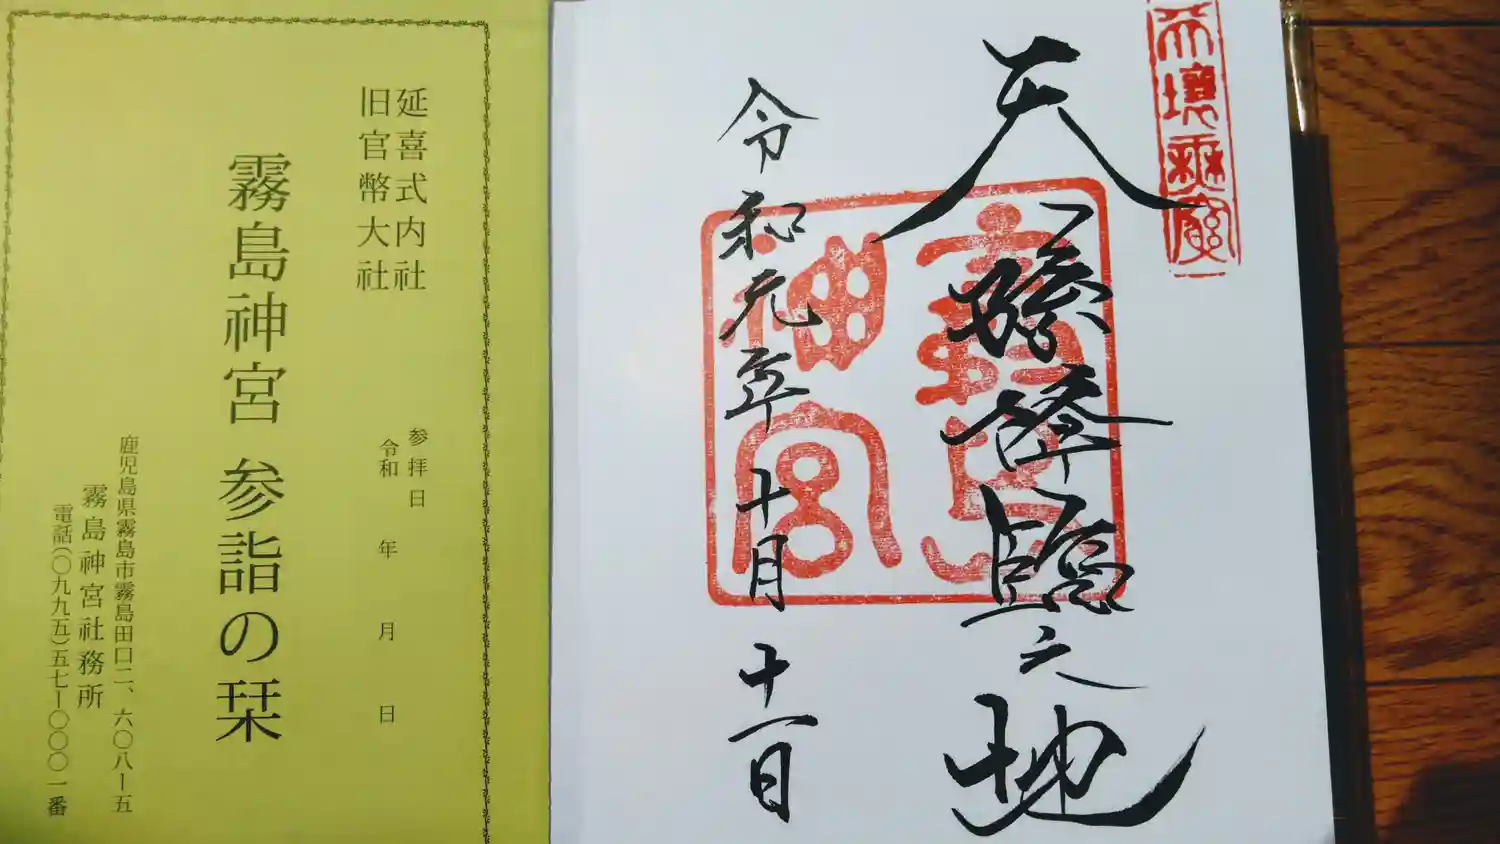 天壌無窮
天孫降臨之地
霧島神宮
令和元年十月十一日
延喜式内社
旧官幣大社
霧島神宮 参詣の栞
参拝日
令和 年 月 日
鹿児島県霧島市霧島田口二、六〇八ー五
霧島神宮社務所
電話(〇九九五)五七ー〇〇〇一番